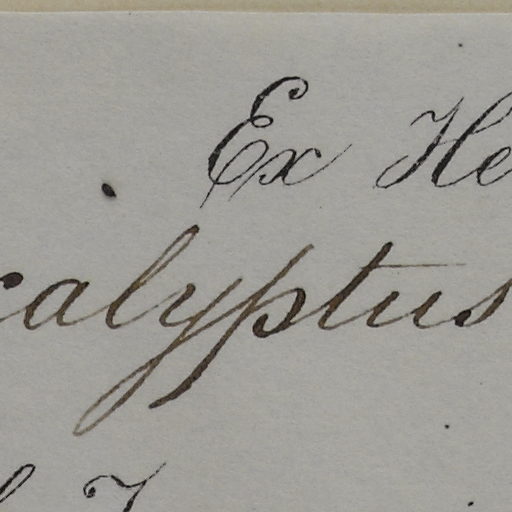 Ex He
calyptus